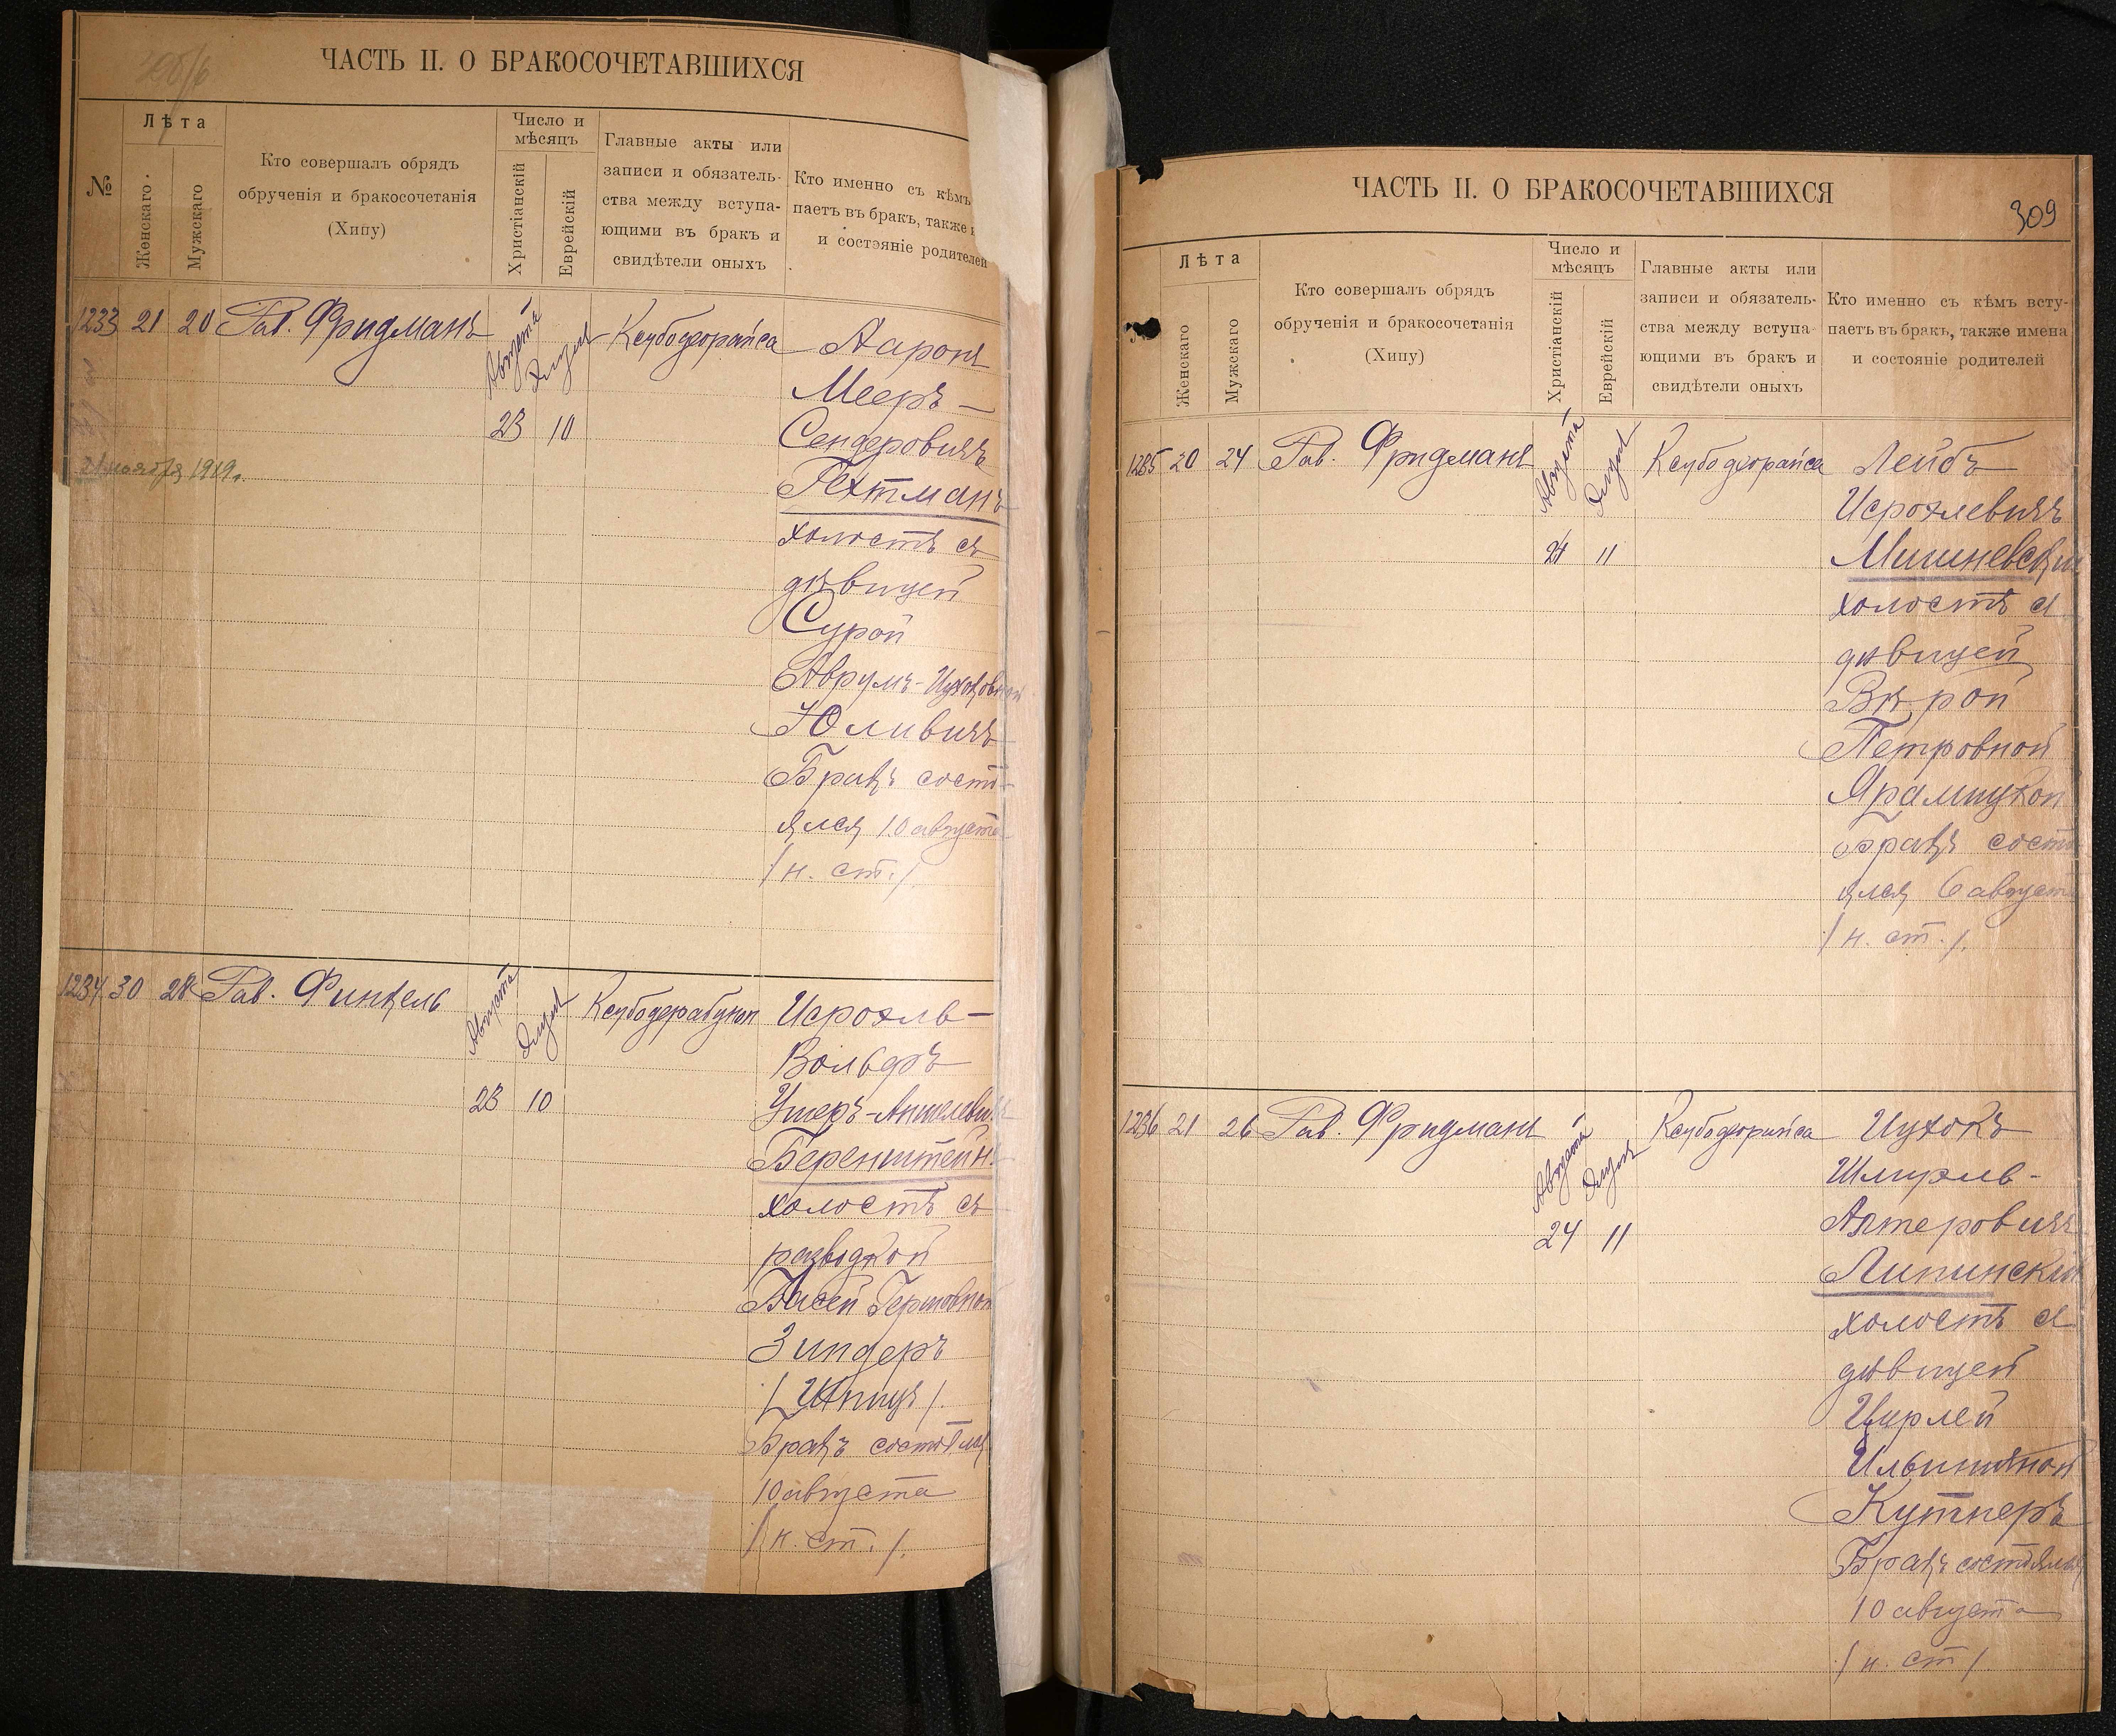 ЧАСТЬ II. О БРАКОСОЧЕТАВШИХСЯ
№
Лѣта
Женскаго
Мужскаго
Кто совершалъ обрядъ
обрученія и бракосочетанія
(Хипу)
Число и
мѣсяцъ
Христіанскій
Еврейскій
Главные акты или
записи и обязатель-
ства между вступа-
ющими въ бракъ и
свидѣтели оныхъ
Кто именно съ кѣмъ
паетъ въ бракъ, также
и состэяніе родителей
1233 21 20 Рав. Фридманъ
Августа
Элула
23 10
Ксубодеорайса
Ааронъ
Мееръ-
Сендеровичъ
Гехтманъ
холостъ съ
дѣвицей
Сурой
Аврумъ-Ицхоковной
Юливичъ
Бракъ состо-
ялся 10 августа
/н. ст./.
21 ноября 1919г.
1234 30 28 Рав. Финкель
Августа
Элула
23 10
Ксубодерабунон
Исроэль-
Вольфъ
Ушеръ-Аншелевичъ
Беренштейнъ
холостъ съ
разводкой
Басей Гершовной
Зиндеръ
/Шпицъ/.
Бракъ состоялся
10 августа
/н. ст./.
ЧАСТЬ II. О БРАКОСОЧЕТАВШИХСЯ
309
Лѣта
Женскаго
Мужскаго
Кто совершалъ обрядъ
обрученія и бракосочетанія
(Хипу)
Число и
мѣсяцъ
Христіанскій
Еврейскій
Главные акты или
записи и обязатель-
ства между вступа-
ющими въ бракъ и
свидѣтели оныхъ
Кто именно съ кѣмъ всту-
паетъ въ бракъ, также имена
и состояніе родителей
1235 20 24 Рав. Фридманъ
Августа
Элула
24 11
Ксубодеорайса
Лейбъ
Исроэлевичъ
Мишневскій
холостъ съ
дѣвицей
Вѣрой
Петровной
Ярамицкой
бракъ состо
ялся 6 августа
/н. ст./.
1236 21 26 Рав. Фридманъ
Августа
Элула
24 11
Ксубодеорайса
Ицхокъ
Шмиэль-
Алтеровичъ
Липинскій
холостъ съ
дѣвицей
Цирлей
Ильиничной
Кутнеръ
Бракъ состоялся
10 августа
/н. ст/